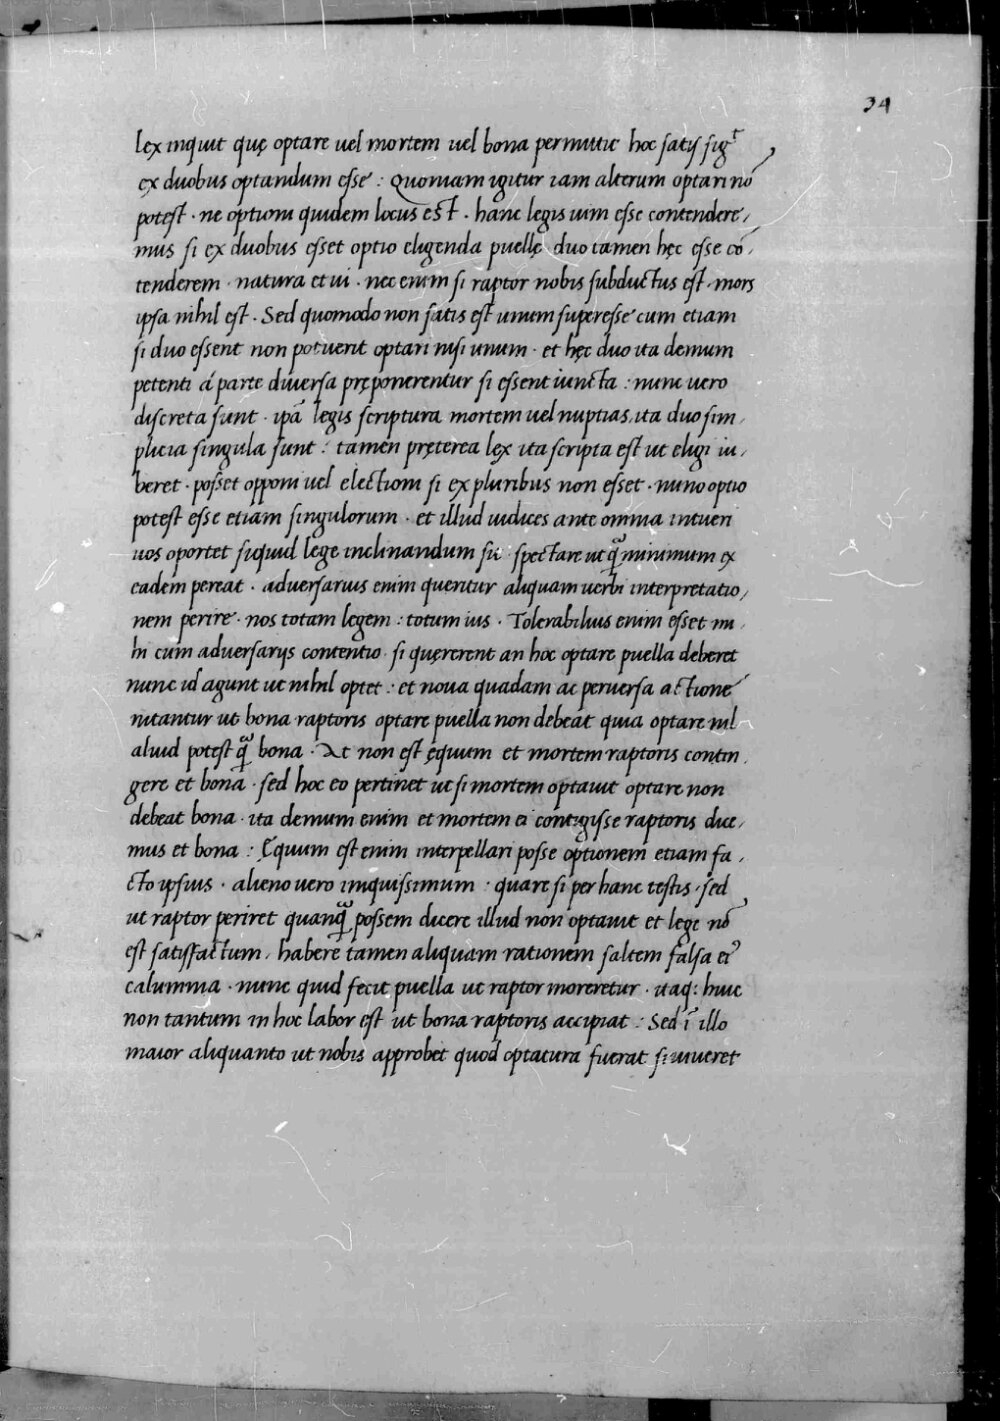 34
lex inquit quę optare uel mortem uel bona permittit hoc satis sig͞r
ex duobus optandum esse : Quoniam igitur iam alterum optari nō
potest · ne optioni quidem locus est · hanc legis uim esse contendere,
mus si ex duobus esset optio eligenda puellę duo tamen hęc esse cō,
tenderem · natura et ui · nec enim si raptor nobis subductus est · mors
ipsa nihil est · Sed quomodo non satis est unum superesse cum etiam
si duo essent non potuerit optari nisi unum · et hęc duo ita demum
petenti á parte diuersa pręponerentur si essent iuncta : nunc uero
discreta sunt · ipā legis scriptura mortem uel nuptias, ita duo sim,
plicia singula sunt : tamen pręterea lex ita scripta est ut eligi iu,
beret · posset opponi uel electioni si ex pluribus non esset · nunc optio
potest esse etiam singulorum · et illud iudices ante omnia intueri
uos oportet siquid lege inclinandum sit spectare ut q̄ minimum ex
eadem pereat · aduersarius enim queritur aliquam uerbi interpretatio,
nem perire · nos totam legem : totum ius · Tolerabilius enim esset mi,
hi cum aduersarijs contentio si quęrerent an hoc optare puella deberet
nunc id agunt ut nihil optet : et noua quadam ac peruersa actionē
nitantur ut bona raptoris optare puella non debeat quia optare nil
aliud potest q̄ bona · At non est ęquum et mortem raptoris contin,
gere et bona · sed hoc eo pertinet ut si mortem optauit optare non
debeat bona · ita demum enim et mortem ei contigisse raptoris dice,
mus et bona : Ęquum est enim interpellari posse optionem etiam fa,
cto ipsius · alieno uero iniquissimum : quare si per hanc testis · sed
ut raptor periret quanq̄ possem dicere illud non optauit et lege nō
est satisfactum, habere tamen aliquam rationem saltem falsa ei
calumnia · nunc quid fecit puella ut raptor moreretur · itaq: huic
non tantum in hoc labor est ut bona raptoris accipiat : Sed ī illo
maior aliquanto ut nobis approbet quod optatura fuerat si uiueret